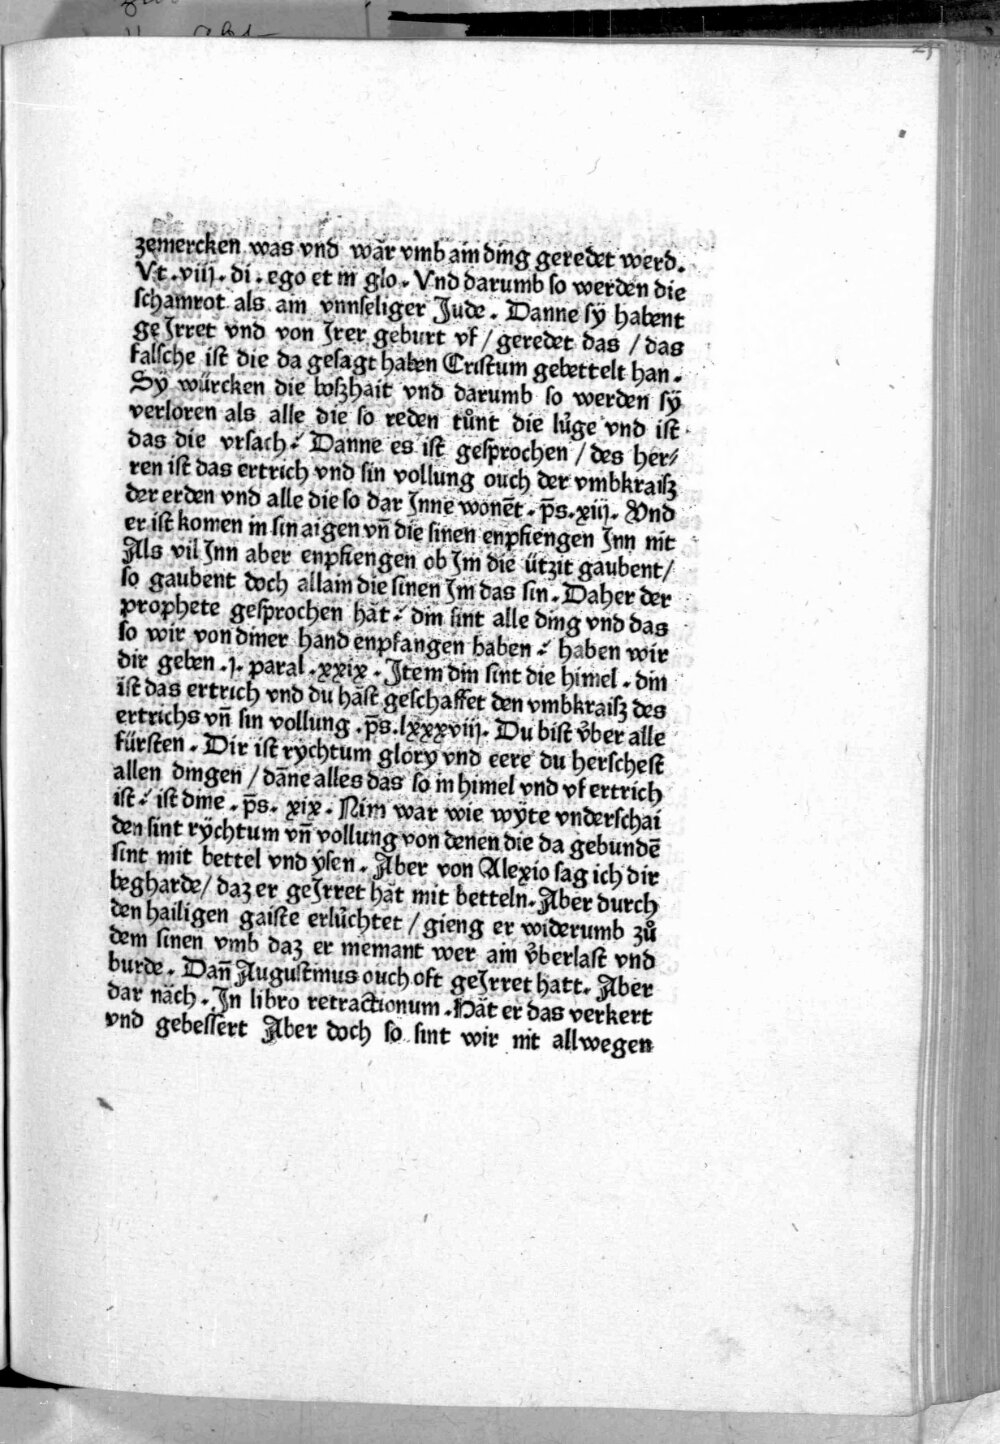 zemercken was vnd wär vmb ain ding geredet werd.
Vt . viij . di . ego et in glo . Vnd darumb so werden die
schamrot als ain vnnseliger Jude . Danne sÿ habent
geJrret vnd von Jrer geburt vf / geredet das / das
falsche ist die da gesagt haben Cristum gebettelt han .
Sÿ würcken die boßhait vnd darumb so werden sÿ
verloren als alle die so reden tuͦnt die luͤge vnd ist
das die vrsach : Danne es ist gesprochen / des her⸗
ren ist das ertrich vnd sin vollung ouch der vmbkraiß
der erden vnd alle die so dar Jnne wonēt . p̄s . xiij . Vnd
er ist komen in sin aigen vn̄ die sinen enpfiengen Jnn nit
Als vil Jnn aber enpfiengen ob Jm die ützit gaubent /
so gaubent doch allain die sinen Jm das sin . Daher der
prophete gesprochen hät : din sint alle ding vnd das
so wir von diner hand enpfangen haben : haben wir
dir geben . j . paral . xxix . Jtem din sint die himel . din
ist das ertrich vnd du häst geschaffet den vmbkraiß des
ertrichs vn̄ sin vollung . p̄s . lxxxviij . Du bist v̊ber alle
fürsten . Dir ist rychtum glory vnd eere du herschest
allen dingen / dāne alles das so in himel vnd vf ertrich
ist : ist dine . p̄s . xix . Nim war wie wÿte vnderschai
den sint rÿchtum vn̄ vollung von denen die da gebundē
sint mit bettel vnd ÿsen . Aber von Alexio sag ich dir
begharde / daz er geJrret hät mit betteln . Aber durch
den hailigen gaiste erluͤchtet / gieng er widerumb zuͦ
dem sinen vmb daz er niemant wer ain v̊berlast vnd
burde . Dan̄ Augustinus ouch oft geJrret hatt . Aber
dar näch . Jn libro retractionum . Hät er das verkert
vnd gebessert Aber doch so sint wir nit allwegen